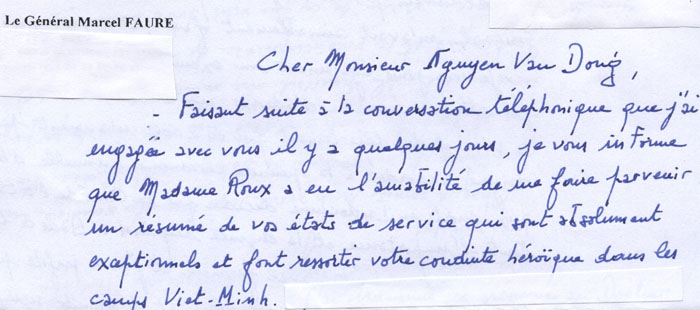 Le Général Marcel FAURE
Cher Monsieur Nguyen Van Dong,
- Faisant suite à la conversation téléphonique que j'ai
engagée avec vous il y a quelques jours, je vous informe
que Madame Roux a eu l'amabilité de me faire parvenir
un résumé de vos états de service qui sont absolument
exceptionnels et font ressortir votre conduite héroïque dans les
camps Viet-Minh.